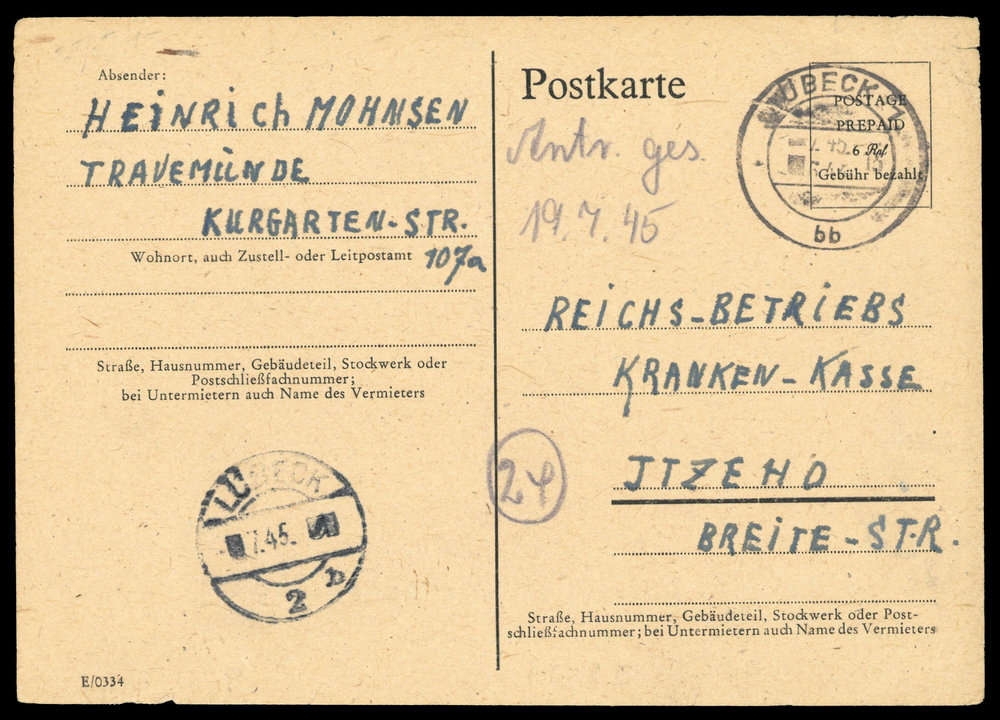 Absender:
HEINRICH MOHNSEN
TRAVEMÜNDE
KURGARTEN-STR.
Wohnort, auch Zustell- oder Leitpostamt
107a
Straße, Hausnummer, Gebäudeteil, Stockwerk oder
Postschließfachnummer;
bei Untermietern auch Name des Vermieters
LÜBECK
7.45.
2 b
E/0334
Postkarte
LÜBECK
bb
POSTAGE
PREPAID
6 Rpf
Gebühr bezahlt
Antr. ges.
19.7.45
REICHS-BETRIEBS
KRANKEN-KASSE
24
JTZEHO
BREITE-STR.
Straße, Hausnummer, Gebäudeteil, Stockwerk oder Post-
schließfachnummer; bei Untermietern auch Name des Vermieters